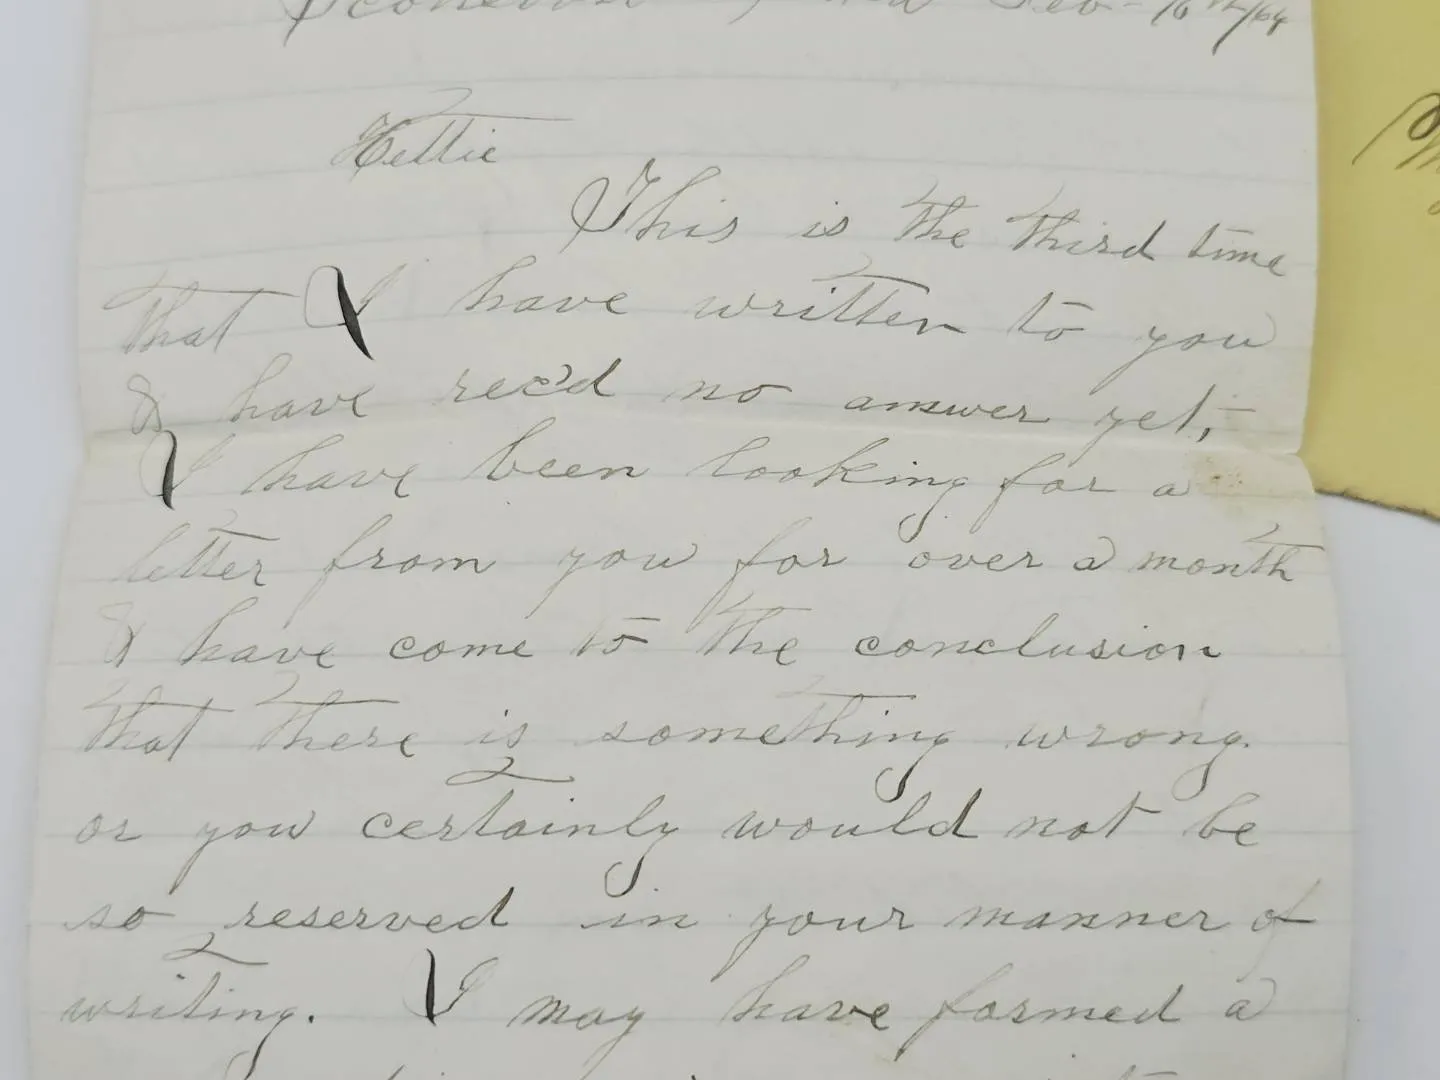 Feb - 16th/64
Hettie
This is the third time
that I have written to you
& have rec'd no answer yet,
I have been looking for a
letter from you for over a month
& have come to the conclusion
that there is something wrong.
or you certainly would not be
so reserved in your manner of
writing. I may have formed a